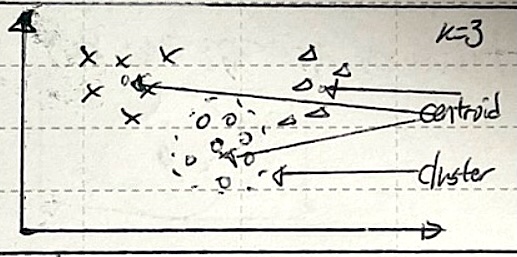 K=3
centroid
cluster